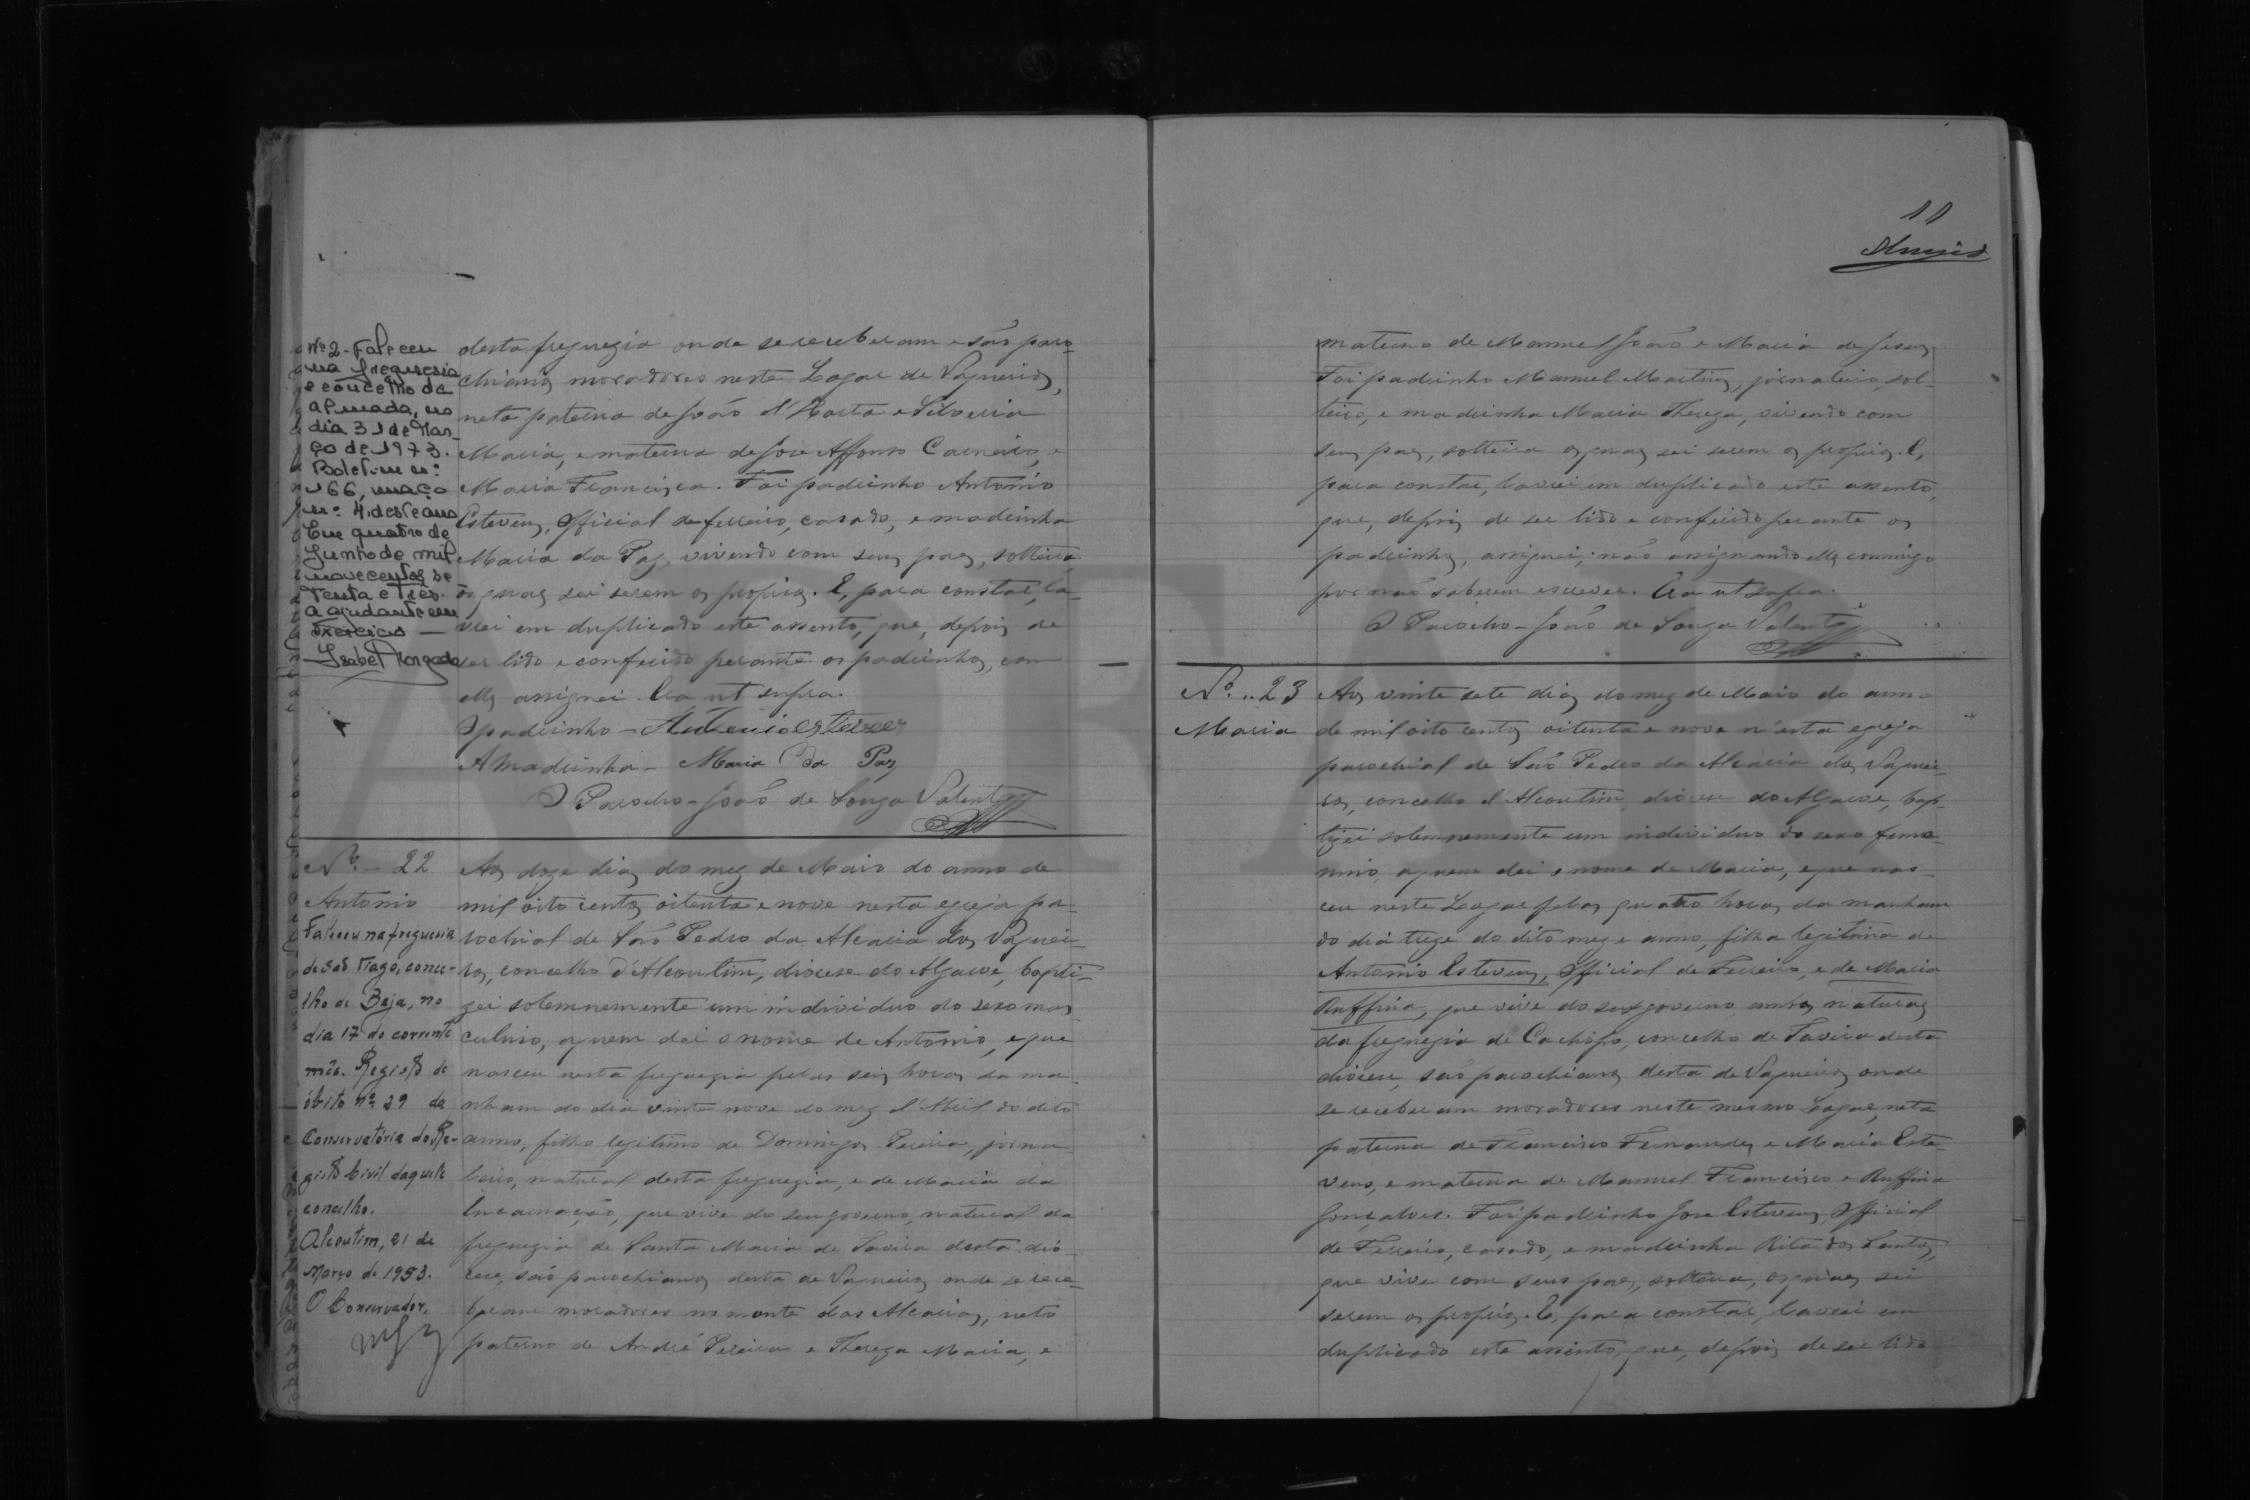 Nº 2 - Faleceu
na freguesia
e concelho de
Almada, no
dia 31 de Mar-
ço de 1973.
Boletim nº
166, maço
nº 4, deste ano
Em quatro de
Junho de mil
novecentos se-
tenta e três.
A ajudante em
exercício —
Isabel
desta freguezia onde se receberam e são paro-
chianos moradores neste Logar de Vaqueiros,
neta paterna de João d'Horta e Silveria
Maria, e materna de José Affonso Carneiro, e
Maria Francisca. Foi padrinho Antonio
Esteves, official de ferreiro, casado, e madrinha
Maria da Paz, vivendo com seus paes, solteira,
os quaes sei serem os proprios. E, para constar, la-
vrei em duplicado este assento, que, depois de
ser lido e conferido perante os padrinhos, com
elles assignei. Era ut supra.
O padrinho - Antonio Esteves
A Madrinha - Maria Da Paz
O Parocho - João de Souza Valente
Nº - 22
Antonio
Faleceu na freguesia
de São Tiago, conce-
lho de Beja, no
dia 17 do corrente
mês. Registo de
óbito nº 29 da
Conservatória do Re-
gisto Civil daquele
concelho.
Alcoutim, 21 de
Março de 1953.
O Conservador,
Aos doze dias do mez de Maio do anno de
mil oito centos oitenta e nove nesta egreja pa-
rochial de São Pedro da Alcaria dos Vaquei-
ros, concelho d'Alcoutim, diocese do Algarve, bapti-
zei solemnemente um individuo do sexo mas-
culino, a quem dei o nome de Antonio, e que
nasceu nesta freguezia pelas seis horas da ma-
nham do dia vinte nove do mez d'Abril do dito
anno, filho legitimo de Domingos Pereira, jorna-
leiro, natural desta freguezia, e de Maria da
Encarnação, que vive do seu governo, natural da
freguezia de Santa Maria de Tavira desta dio-
cese, são parochianos desta de Vaqueiros onde se rece-
beram moradores no monte das Alcarias, neto
paterno de André Pereira e Thereza Maria, e
11
materno de Manuel João e Maria de Jesus.
Foi padrinho Manuel Martins, jornaleiro, sol-
teiro, e madrinha Maria Thereza, vivendo com
seus paes, solteira os quaes sei serem os proprios. E,
para constar, lavrei em duplicado este assento,
que, depois de ser lido e conferido perante os
padrinhos, assignei; não assignando elles commigo
por não saberem escrever. Era ut supra.
O Parocho - João de Souza Valente
Nº .. 23
Maria
Aos vinte sete dias do mez de Maio do anno
de mil oito centos oitenta e nove n'esta egreja
parochial de São Pedro da Alcaria dos Vaquei-
ros, concelho d'Alcoutim, diocese do Algarve, bap-
tizei solemnemente um individuo do sexo femi-
nino, a quem dei o nome de Maria, e que nas-
ceu neste Logar pelas quatro horas da manham
do dia treze do dito mez e anno, filha legitima de
Antonio Esteves, Official de Ferreiro, e de Maria
Ruffina, que vive do seu governo ambos naturaes
da freguezia de Cachopo, concelho de Tavira desta
diocese, são parochianos desta de Vaqueiros onde
se receberam moradores neste mesmo Logar, neta
paterna de Francisco Fernandes e Maria Este-
vens, e materna de Manuel Francisco e Ruffina
Gonçalves. Foi padrinho José Esteves, Official
de Ferreiro, casado, e madrinha Rita dos Santos,
que vive com seus paes, solteira, os quaes sei
serem os proprios. E, para constar, lavrei em
duplicado este assento, que, depois de ser lido